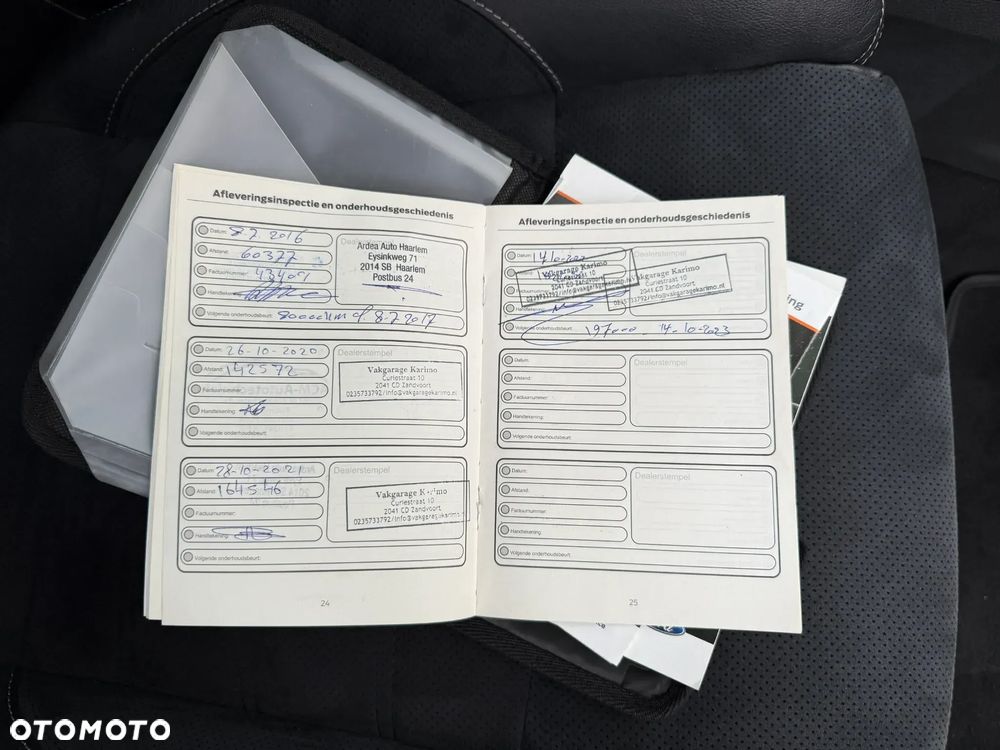 Afleveringsinspectie en onderhoudsgeschiedenis
Datum: 8 7 2016
Afstand: 60377
Factuurnummer:
Handtekening:
Volgende onderhoudsbeurt: 80000km of 8.7.2017
Dealerstempel
Ardea Auto Haarlem
Eysinkweg 71
2014 SB Haarlem
Postbus 24
Datum: 26-10-2020
Afstand: 142572
Factuurnummer:
Handtekening:
Volgende onderhoudsbeurt:
Dealerstempel
Vakgarage Karimo
Curiestraat 10
2041 CD Zandvoort
0235733792/info@vakgaragekarimo.nl
Datum: 28-10-2021
Afstand: 164546
Factuurnummer:
Handtekening:
Volgende onderhoudsbeurt:
Dealerstempel
Vakgarage Karimo
Curiestraat 10
2041 CD Zandvoort
0235733792/info@vakgaragekarimo.nl
24
Afleveringsinspectie en onderhoudsgeschiedenis
Datum:
Afstand:
Factuurnummer:
Handtekening:
Volgende onderhoudsbeurt: 197000 - 14-10-2023
Vakgarage Karimo
Curiestraat 10
2041 CD Zandvoort
0235733792/info@vakgaragekarimo.nl
Dealerstempel
Vakgarage Karimo
Curiestraat 10
2041 CD Zandvoort
0235733792/info@vakgaragekarimo.nl
Datum:
Afstand:
Factuurnummer:
Handtekening:
Volgende onderhoudsbeurt:
Dealerstempel
Datum:
Afstand:
Factuurnummer:
Handtekening:
Volgende onderhoudsbeurt:
Dealerstempel
25
OTOMOTO